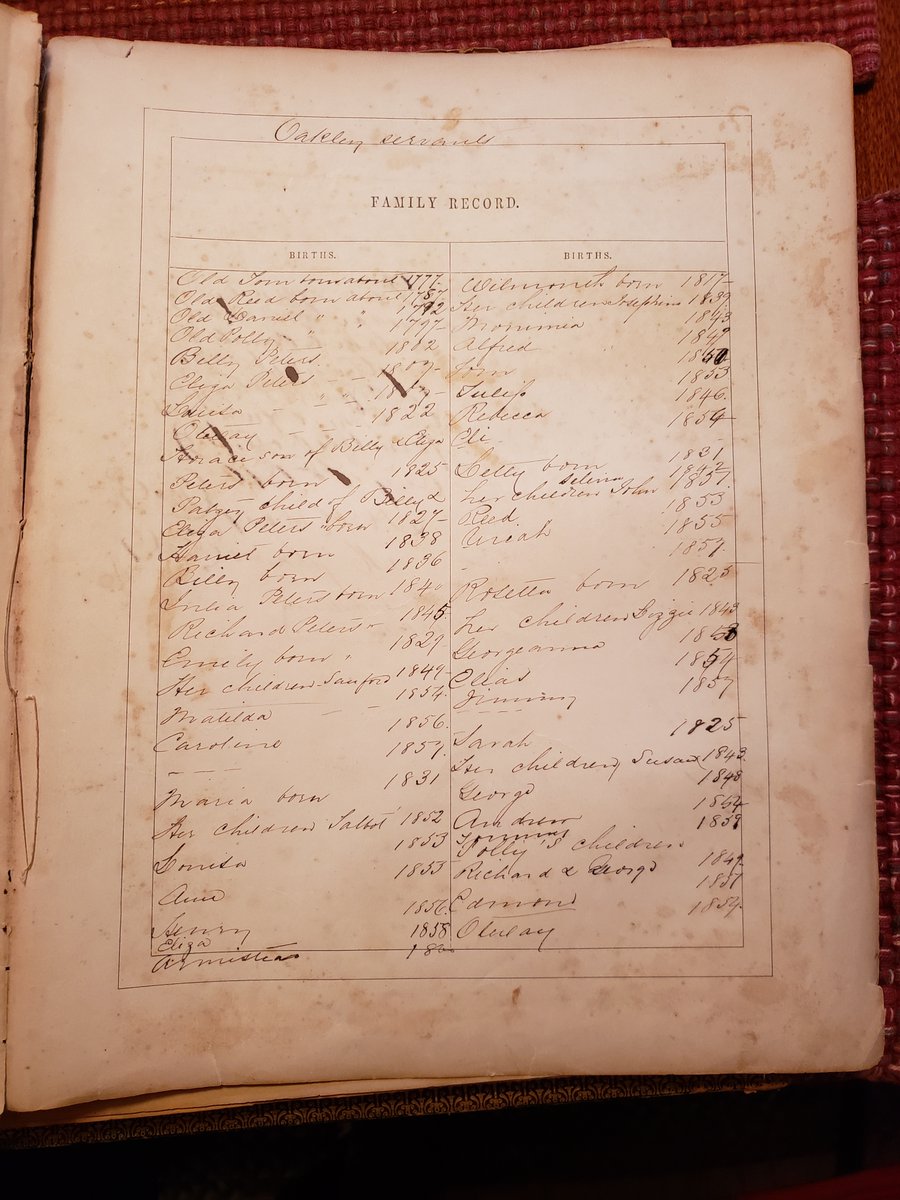 Oakley servants
FAMILY RECORD.
BIRTHS.
Old Tom born about 1777
Old Reed born about 1787
Old Daniel " " 1792
Old Polly " " 1797
Billy Peters 1802
Eliza Peters
Louisa
1822
Horace son of Billy & Eliza
Peters born 1825
Patsey child of Billy &
Eliza Peters born 1827
Harriet born 1838
Billy born 1836
Julia Peters born 1840
Richard Peters 1845
Emily born 1829
Her children Sanford 1849
Matilda 1854
Caroline 1856
1857
Maria born 1831
Her children Talbot 1852
Louisa 1853
Ann 1853
Henry 1856
Eliza 1858
Armistea
BIRTHS.
Wilmouth born 1817
Her children Josephine 1839
1843
Alfred 1849
Tom 1850
Julip 1853
Rebecca 1846
Eli 1854
Letty born 1831
Selena 1842
her children John 1851
Reed 1853
Uriah 1855
1857
Rosetta born 1825
her children Lizzie 1843
Georgeanna 1853
Elias 1854
Jimmy 1857
Sarah 1825
Her children Susan 1843
George 1848
Andrew 1854
1859
Polly's children
Richard & George 1849
Edmond 1851
1854